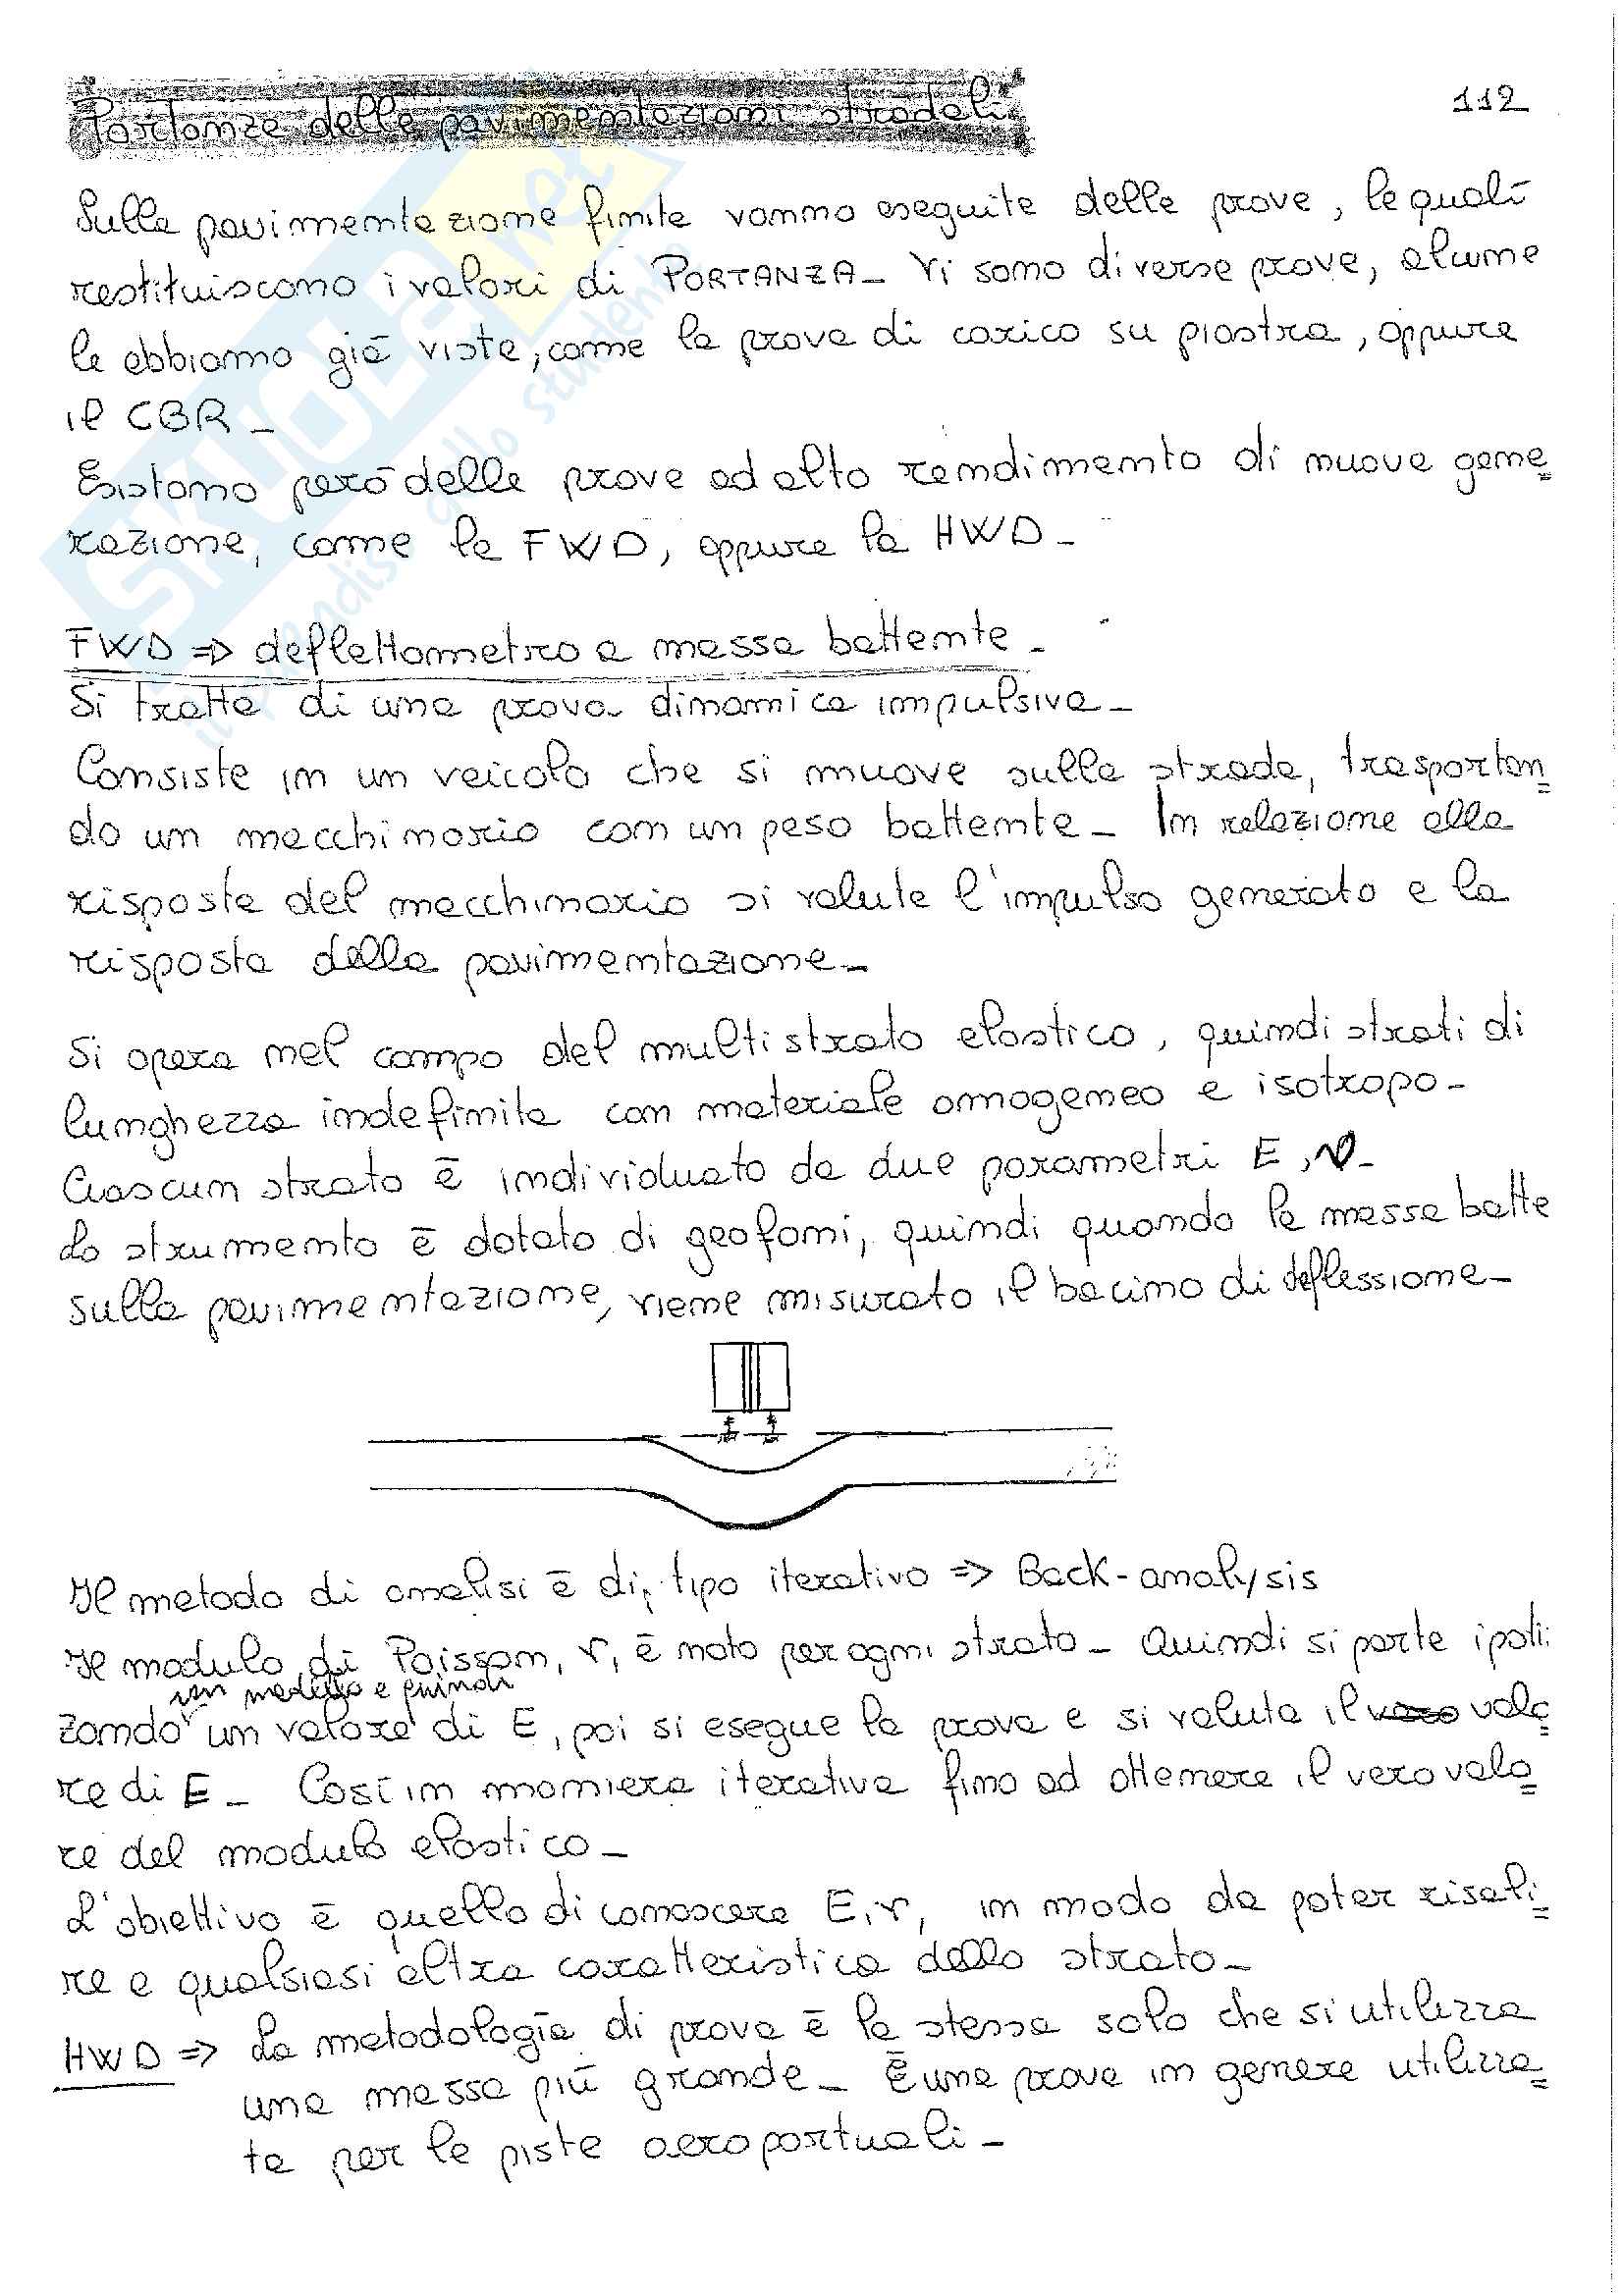 112
Portanza delle pavimentazioni stradali
Sulla pavimentazione finita vanno eseguite delle prove, le quali
restituiscono i valori di PORTANZA_ Vi sono diverse prove, alcune
le abbiamo già viste, come la prova di carico su piastra, oppure
il CBR_
Esistono però delle prove ad alto rendimento di nuova gene=
razione, come la FWD, oppure la HWD_
FWD => deflettometro a massa battente_
Si tratta di una prova dinamica impulsiva_
Consiste in un veicolo che si muove sulla strada, trasportan=
do un macchinario con un peso battente_ In relazione alla
risposta del macchinario si valuta l'impulso generato e la
risposta della pavimentazione_
Si opera nel campo del multistrato elastico, quindi strati di
lunghezza indefinita con materiale omogeneo e isotropo_
Ciascun strato è individuato da due parametri E, ν_
Lo strumento è dotato di geofoni, quindi quando la massa batte
sulla pavimentazione, viene misurato il bacino di deflessione_
Il metodo di analisi è di tipo iterativo => Back-analysis
Il modulo di Poisson, ν, è noto per ogni strato_ Quindi si parte ipotiz
un modello e quindi
zando un valore di E, poi si esegue la prova e si valuta il valo
re di E_ Così in maniera iterativa fino ad ottenere il vero valo=
re del modulo elastico_
L'obiettivo è quello di conoscere E, ν, in modo da poter risali=
re a qualsiasi altra caratteristica dello strato_
HWD => La metodologia di prova è la stessa solo che si utilizza
una massa più grande_ È una prova in genere utilizza=
ta per le piste aeroportuali_
SKUOLA.net
il paradiso dello studente